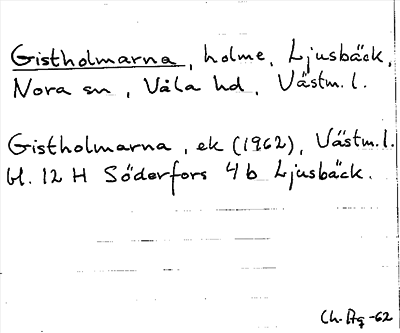 Gistholmarna, holme, Ljusbäck,
Nora sn, Våla hd, Västm. l.
Gistholmarna, ek (1962), Västm. l.
bl. 12 H Söderfors 4 b Ljusbäck.
Ch. Ag -62